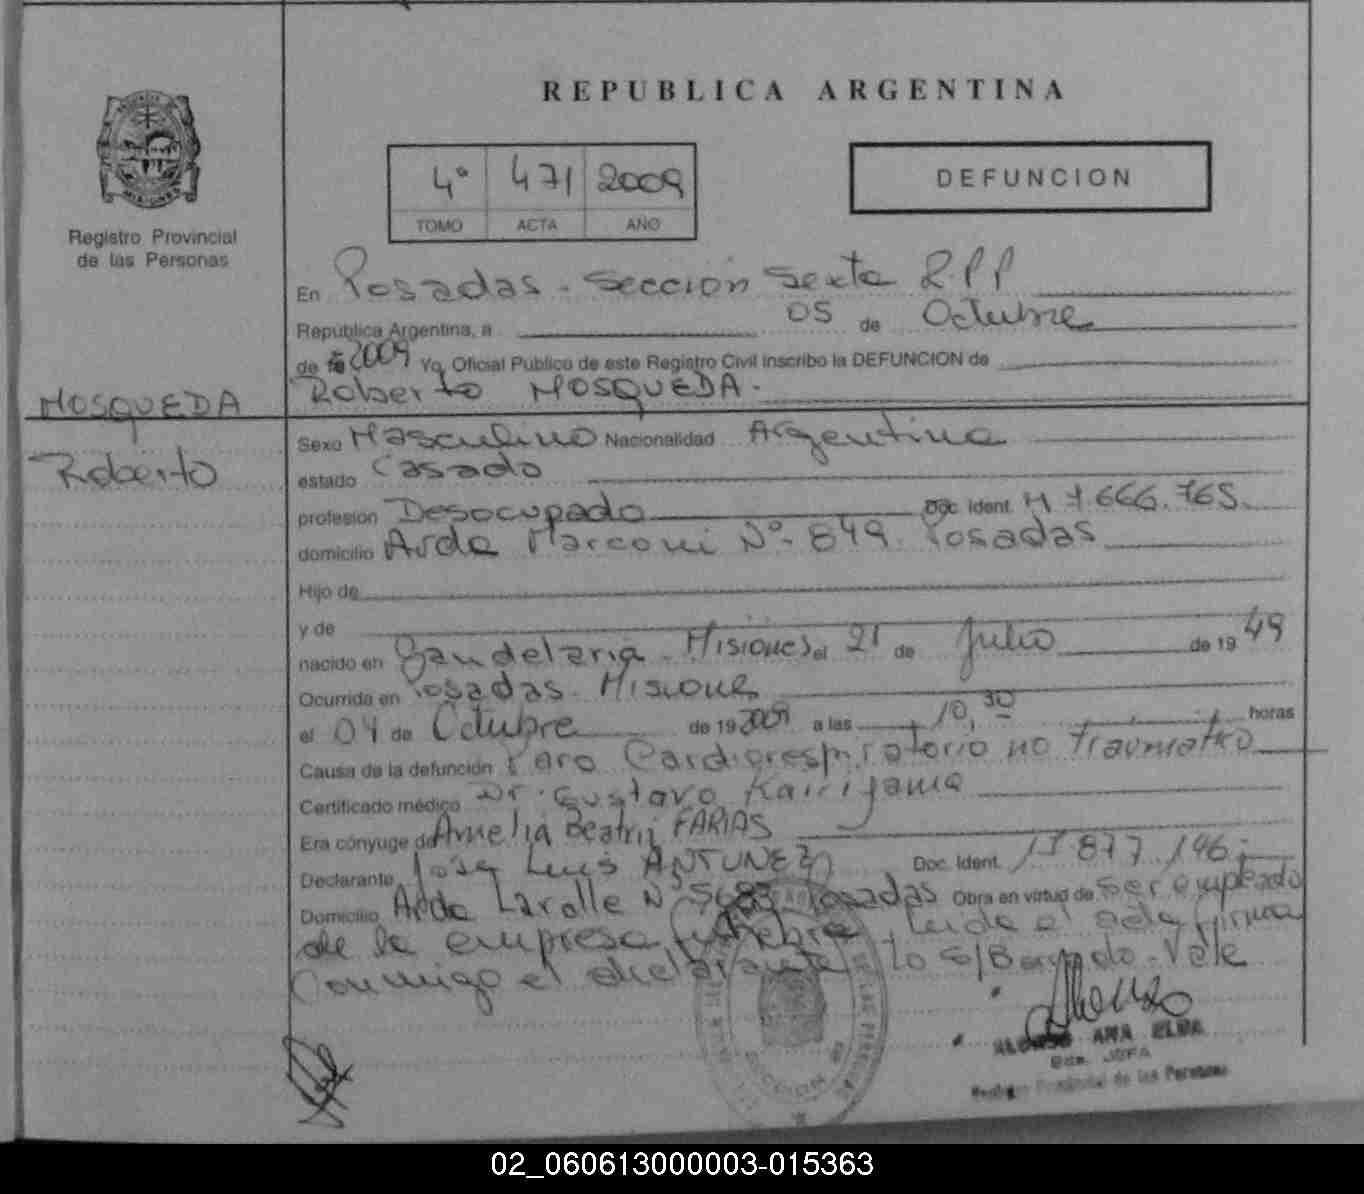 REPUBLICA ARGENTINA
4º 471 2009
TOMO ACTA AÑO
DEFUNCION
PROVINCIA DE MISIONES
Registro Provincial
de las Personas
En Posadas - Sección Sexta R.P.P
República Argentina, a 05 de Octubre
de 2009 Yo, Oficial Público de este Registro Civil inscribo la DEFUNCION de
Roberto MOSQUEDA.
MOSQUEDA
Roberto
Sexo Masculino Nacionalidad Argentina
estado Casado
profesión Desocupado Doc. Ident. M 7.666.765.
domicilio Avda Marconi Nº 849. Posadas
Hijo de
y de
nacido en Candelaria - Misiones el 21 de Julio de 1949
Ocurrida en Posadas - Misiones
el 04 de Octubre de 19 2009 a las 10,30 horas
Causa de la defunción Paro Cardiorespiratorio no traumatico
Certificado médico Dr. Gustavo
Era cónyuge de Amelia Beatriz FARIAS
Declarante José Luis ANTUNEZ Doc. Ident. 17.877.146;
Domicilio Avda Lavalle Nº 5683 Posadas Obra en virtud de ser empleado
de la empresa fúnebre. Leida el acta firma
Conmigo el declarante. Lo S/Borrado. Vale
ALONSO ANA ELBA
JEFA
Registro Provincial de las Personas
02_060613000003-015363